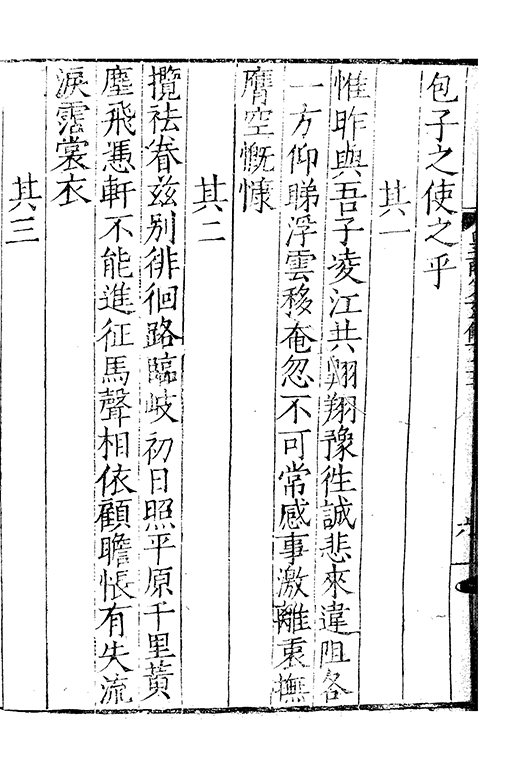 包子之使之乎
其一
惟昨與吾子凌江共翺翔豫徃誠悲來違阻各
一方仰睇浮雲移奄忽不可常感事激離衷撫
膺空慨慷
其二
攬袪眷兹别徘徊路臨岐初日照平原千里黃
塵飛憑軒不能進征馬聲相依顧瞻悵有失流
淚霑裳衣
其三